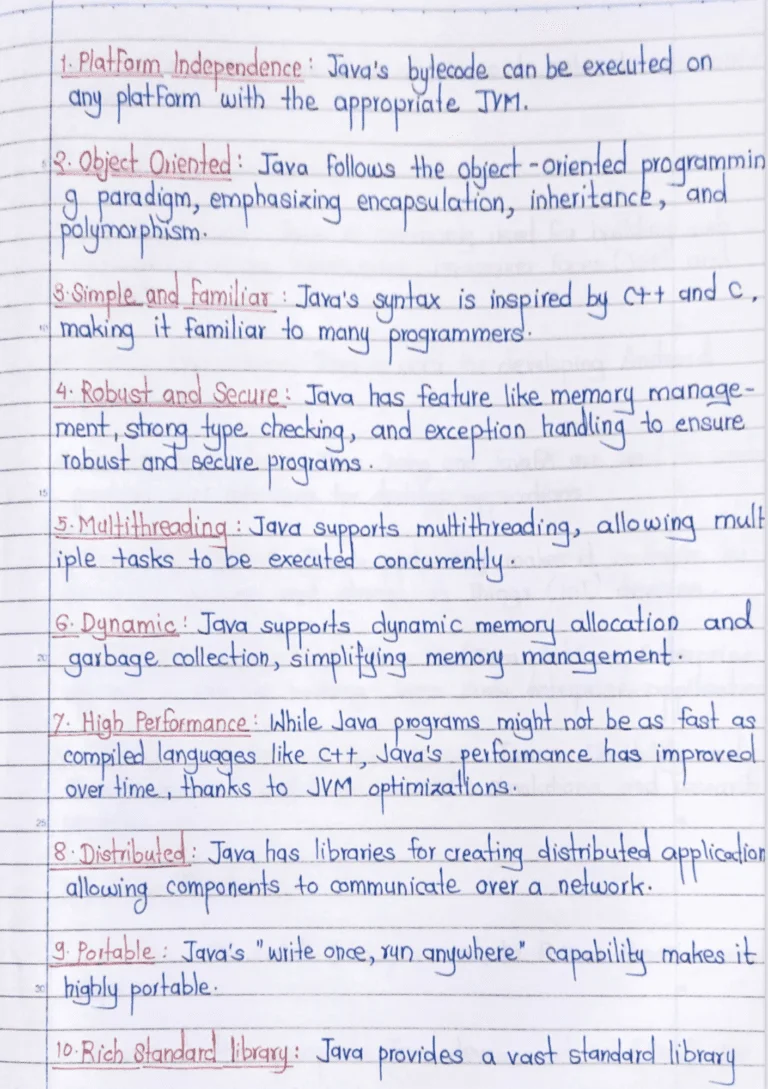 1. Platform Independence: Java's bylecode can be executed on
any platform with the appropriate JVM.
2. Object Oriented: Java follows the object-oriented programmin
g paradigm, emphasizing encapsulation, inheritance, and
polymorphism.
3. Simple and familiar: Java's syntax is inspired by C++ and C,
making it familiar to many programmers.
4. Robust and Secure: Java has feature like memory manage-
ment, strong type checking, and exception handling to ensure
robust and secure programs.
15
5. Multithreading: Java supports multithreading, allowing mult
iple tasks to be executed concurrently.
6. Dynamic: Java supports dynamic memory allocation and
20
garbage collection, simplifying memory management.
7. High Performance: While Java programs might not be as fast as
compiled languages like C++, Java's performance has improved
over time, thanks to JVM optimizations.
25
8. Distributed: Java has libraries for creating distributed application
allowing components to communicate over a network.
9. Portable: Java's "write once, run anywhere" capability makes it
30
highly portable.
10. Rich Standard library: Java provides a vast standard library